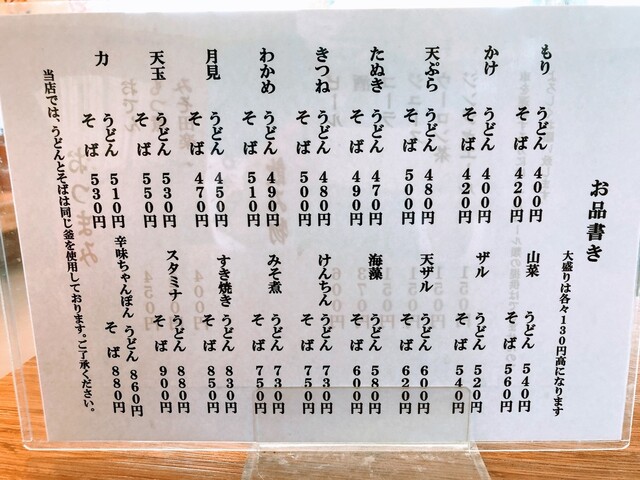 お品書き
大盛りは各々130円高になります
もり
うどん 400円
そば 420円
かけ
うどん 400円
そば 420円
天ぷら
うどん 480円
そば 500円
たぬき
うどん 470円
そば 490円
きつね
うどん 480円
そば 500円
わかめ
うどん 490円
そば 510円
月見
うどん 450円
そば 470円
天玉
うどん 530円
そば 550円
力
うどん 510円
そば 530円
山菜
うどん 540円
そば 560円
ザル
うどん 520円
そば 540円
天ザル
うどん 600円
そば 620円
海藻
うどん 580円
そば 600円
けんちん
うどん 730円
そば 750円
みそ煮
うどん 730円
そば 750円
すき焼き
うどん 830円
そば 850円
スタミナ
うどん 880円
そば 900円
辛味ちゃんぽん
うどん 860円
そば 880円
当店では、うどんとそばは同じ釜を使用しております。ご了承ください。